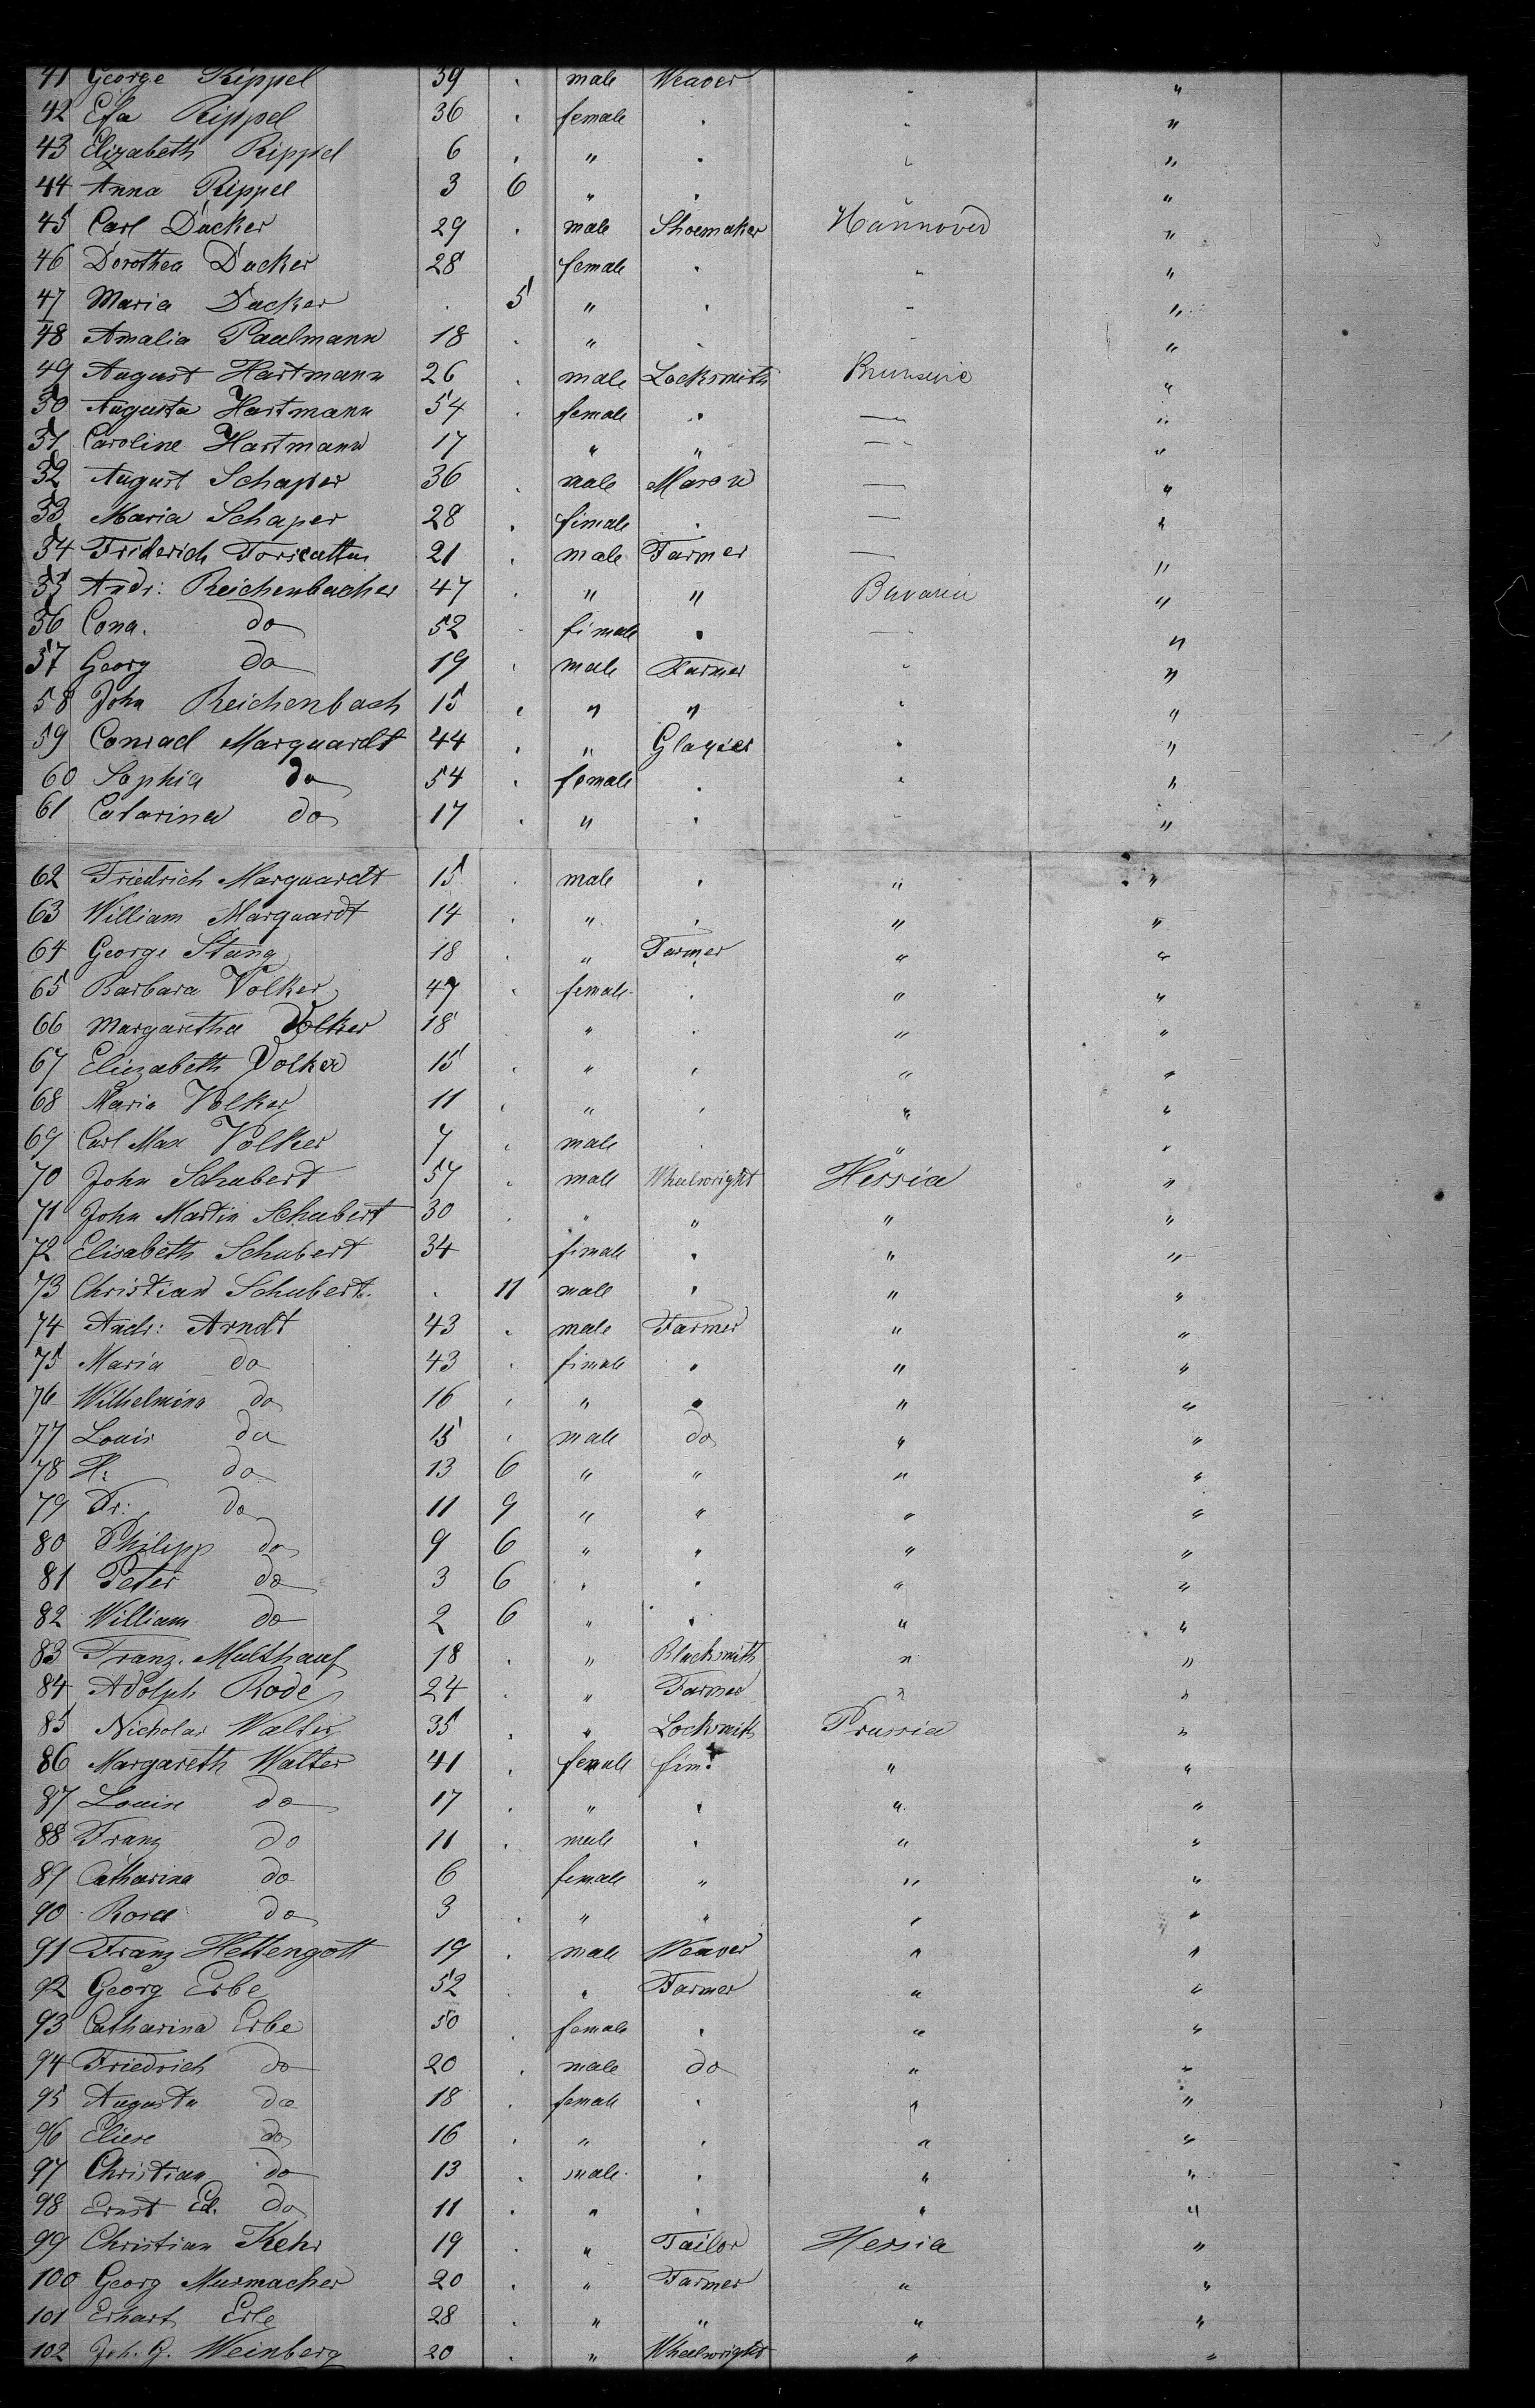 41 George Rippel 39 . male Weaver " "
42 Efa Rippel 36 . female . " "
43 Elizabeth Rippel 6 . " . " "
44 Anna Rippel 3 6 " . "
45 Carl Ducker 29 . male Shoemaker Hannover "
46 Dorothea Ducker 28 female . " "
47 Maria Ducker . 5 " . " "
48 Amalia Paulmann 18 . " . "
49 August Hartmann 26 . male Locksmith "
50 Augusta Hartmann 54 . female . — "
51 Caroline Hartmann 17 " " — "
52 August Schaper 36 . male Mason — "
53 Maria Schaper 28 . fimale . — "
54 Friderich 21 . male Farmer — "
55 Andr: Reichenbacher 47 . " " Bavaria "
56 Cona. do 52 fimale . — "
57 Georg do 19 . male Farmer " "
58 John Reichenbach 15 . " " " "
59 Conrad Marquardt 44 . " Glazier " "
60 Sophia do 54 . female . " "
61 Catarina do 17 . " . " "
62 Friedrich Marquardt 15 . male . " "
63 William Marquardt 14 . " . " "
64 George Stang 18 . " Farmer " "
65 Barbara Volker 47 . female . " "
66 Margaretha Volker 18 " . " "
67 Eliezabeth Volker 15 . " . " "
68 Maria Volker 11 . " . " "
69 Carl Max Volker 7 . male . " "
70 John Schubert 57 . male Wheelwright Hessia "
71 John Martin Schubert 30 . " " " "
72 Elisabeth Schubert 34 fimale . " "
73 Christian Schubert . 11 male . " "
74 Andr: Arndt 43 . male Farmer " "
75 Maria do 43 . fimale . " "
76 Wilhelmina do 16 . " . " "
77 Louis do 15 . male do " "
78 H: do 13 6 " " " "
79 Fr: do 11 9 " " " "
80 Philipp do 9 6 " " " "
81 Peter do 3 6 " . " "
82 William do 2 6 " . " "
83 Franz. Multhauf 18 . " Blacksmith " "
84 Adolph Rode 24 . " Farmer " "
85 Nicholas Walter 35 . " Locksmith Prussia "
86 Margareth Walter 41 . female " "
87 Louise do 17 . " . " "
88 Franz do 11 . male . " "
89 Catharina do 6 female " " "
90 Rosa do 3 . " " " "
91 Franz Hettengott 19 . male Weaver " "
92 Georg Erbe 52 . " Farmer " "
93 Catharina Erbe 50 . female . " "
94 Friedrich do 20 . male do " "
95 Augusta do 18 . female . " "
96 Eliese do 16 . " . " "
97 Christian do 13 . male . " "
98 Ernst Ed. do 11 . " . " "
99 Christian Kehr 19 . " Tailor Hessia "
100 Georg Murmacher 20 . " Farmer " "
101 Erhart Erle 28 . " " " "
102 Joh. G. Weinberg 20 . " Wheelwright " "